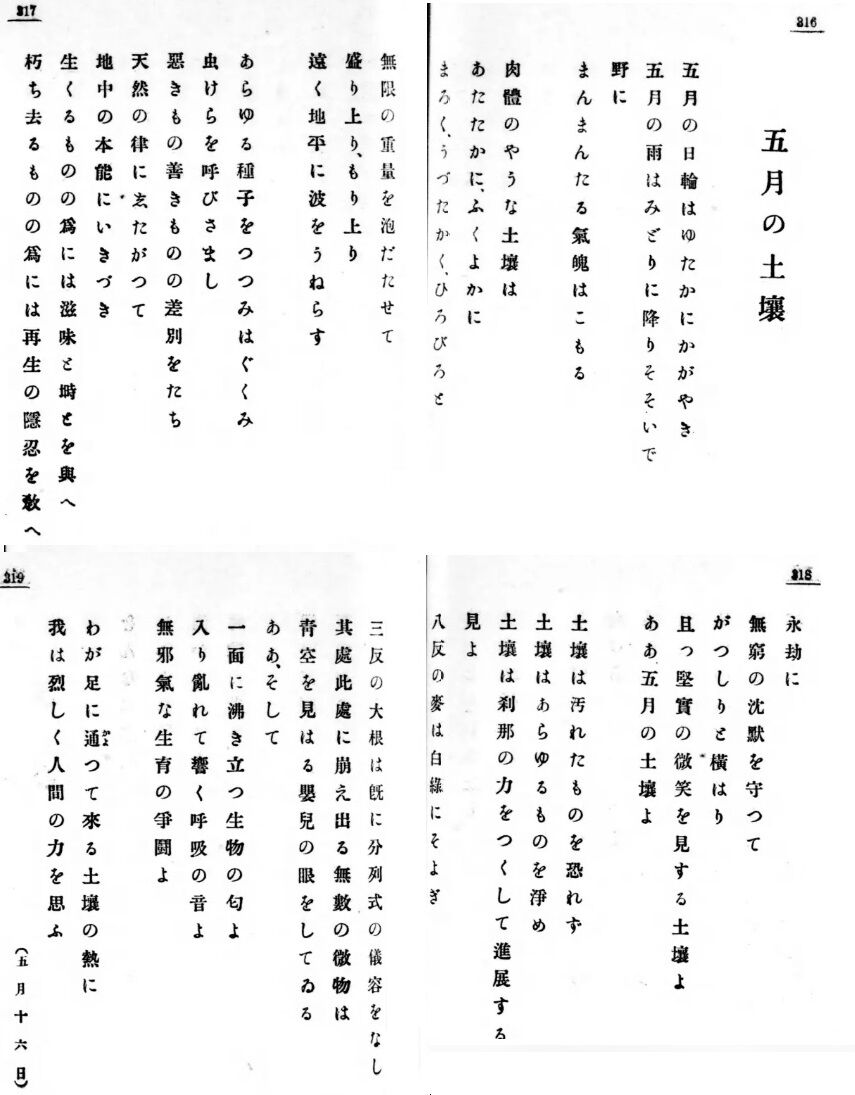 316
五月の土壤
五月の日輪はゆたかにかがやき
五月の雨はみどりに降りそそいで
野に
まんまんたる氣魄はこもる
肉體のやうな土壤は
あたたかに、ふくよかに
まろく、うづたかく、ひろびろと
317
無限の重量を泡だたせて
盛り上り、もり上り
遠く地平に波をうねらす
あらゆる種子をつつみはぐくみ
虫けらを呼びさまし
惡きもの善きものの差別をたち
天然の律に志たがつて
地中の本能にいきづき
生くるものの爲には滋味と塒とを與へ
朽ち去るものの爲には再生の隱忍を敎へ
318
永劫に
無窮の沈默を守つて
がつしりと橫はり
且つ堅實の微笑を見する土壤よ
ああ五月の土壤よ
土壤は汚れたものを恐れず
土壤はあらゆるものを淨め
土壤は刹那の力をつくして進展する
見よ
八反の麥は白綠にそよぎ
319
三反の大根は旣に分列式の儀容をなし
其處此處に崩え出る無數の微物は
靑空を見はる嬰兒の眼をしてゐる
ああ、そして
一面に沸き立つ生物の匂よ
入り亂れて響く呼吸の音よ
無邪氣な生育の爭鬪よ
わが足に通つて來る土壤の熱に
我は烈しく人間の力を思ふ
(五月十六日)